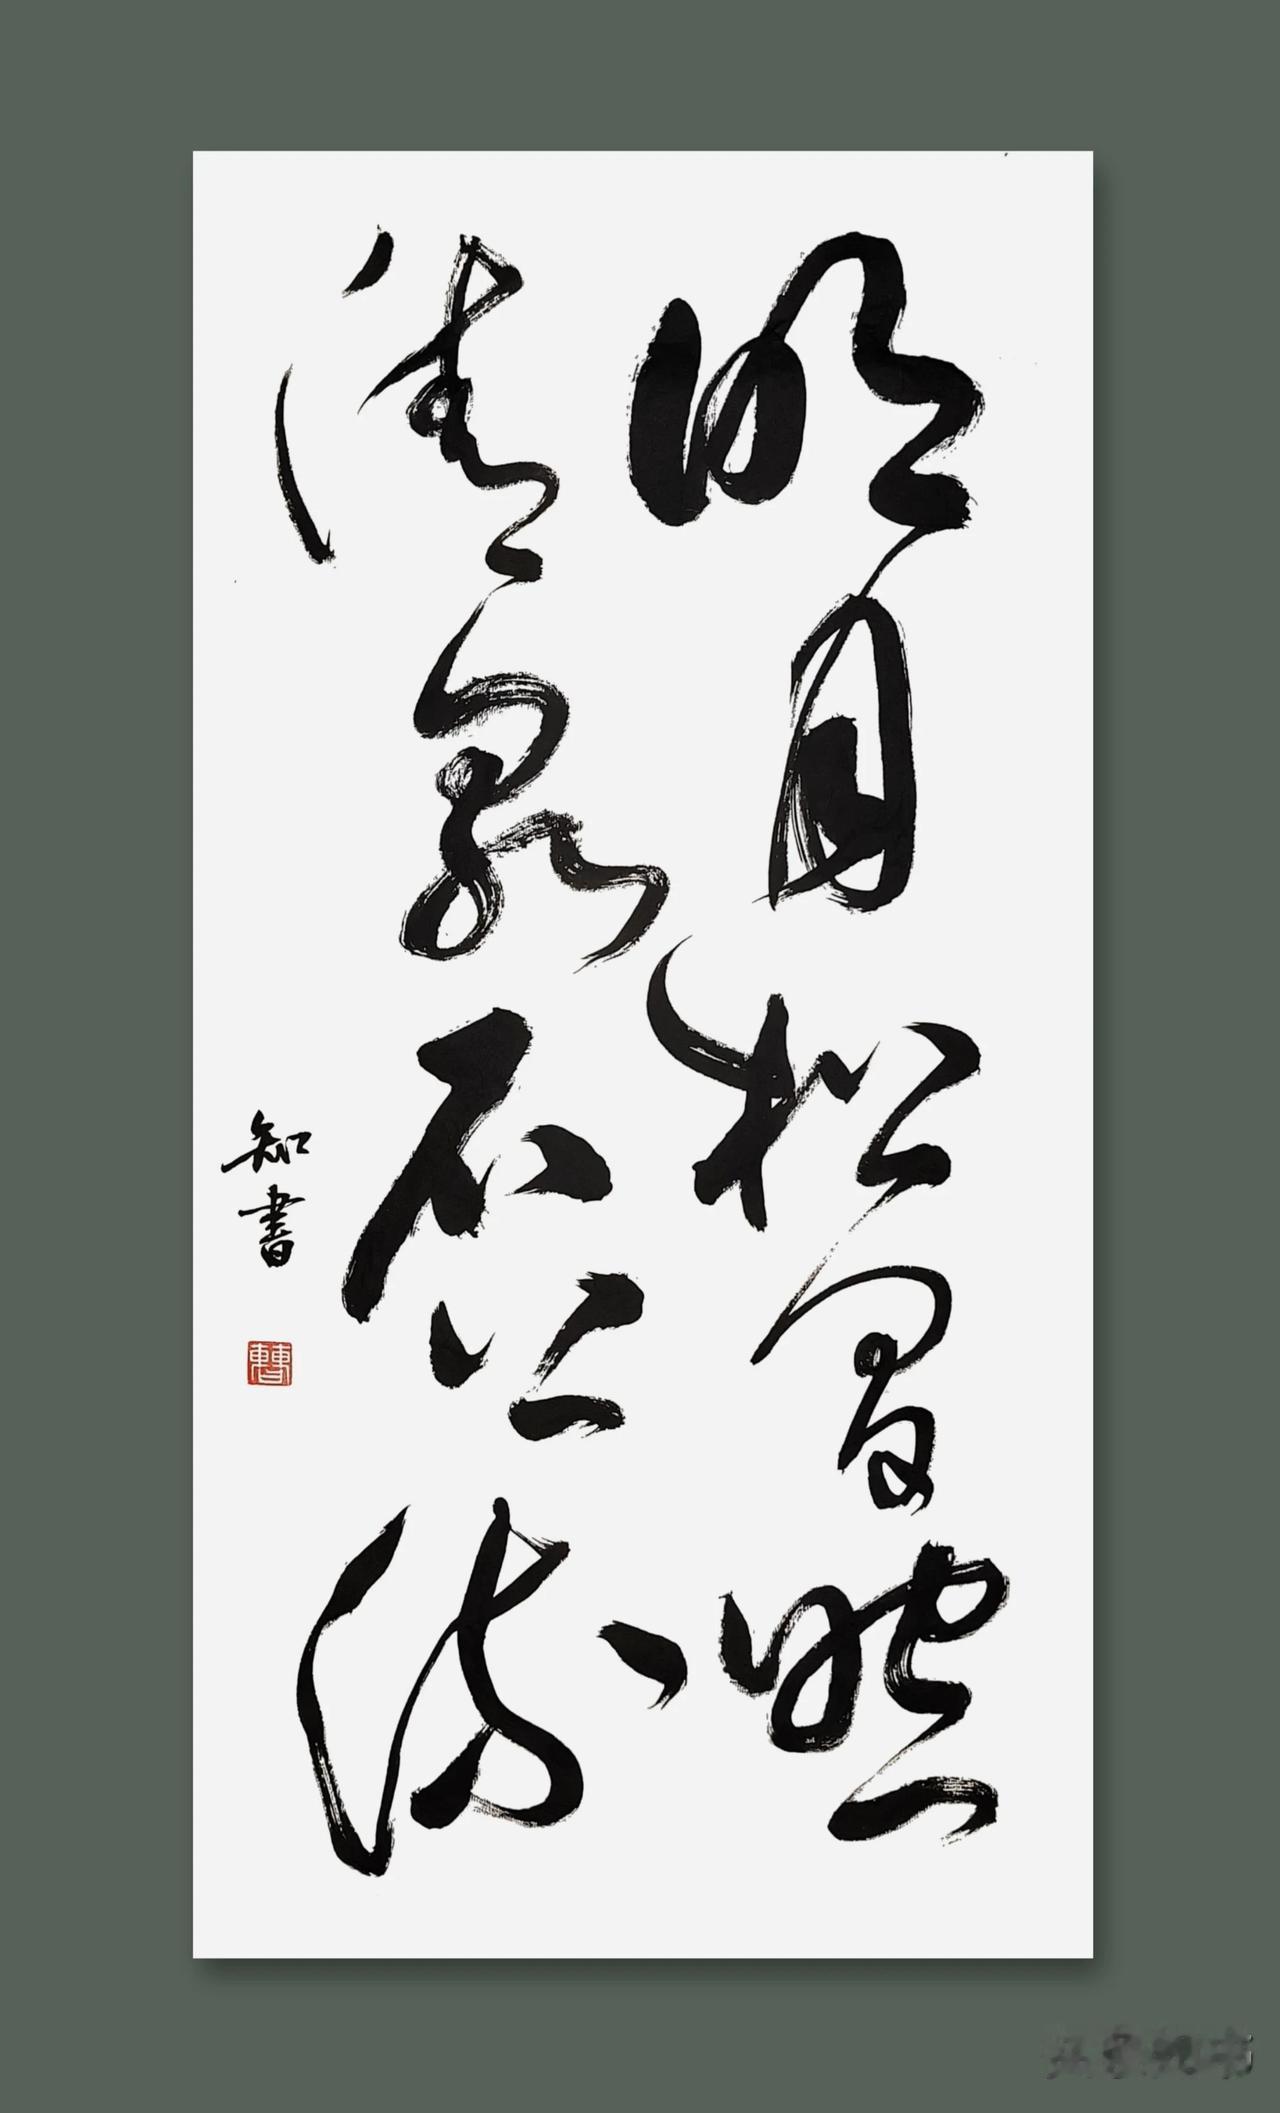 明月松間照
清泉石上流
知書